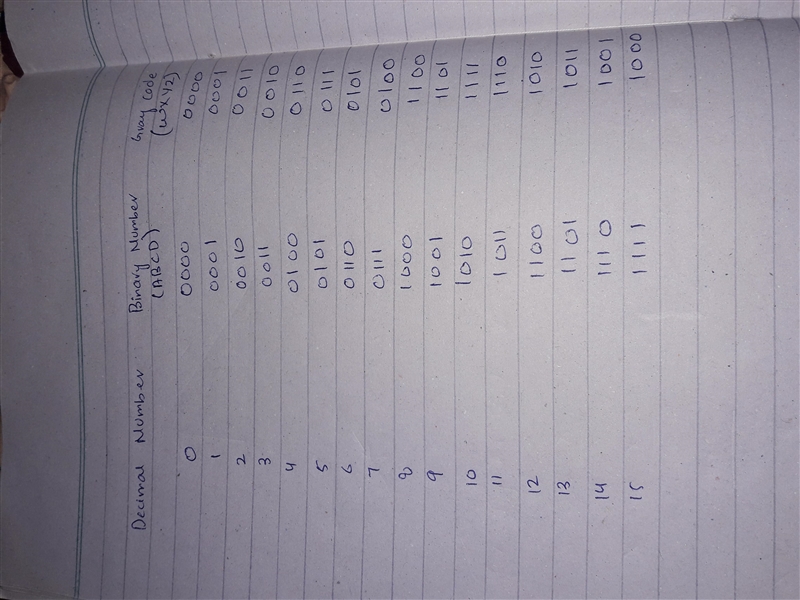 Decimal Number Binary Number Gray Code
(ABCD) (WXYZ)
0 0000 0000
1 0001 0001
2 0010 0011
3 0011 0010
4 0100 0110
5 0101 0111
6 0110 0101
7 0111 0100
8 1000 1100
9 1001 1101
10 1010 1111
11 1011 1110
12 1100 1010
13 1101 1011
14 1110 1001
15 1111 1000